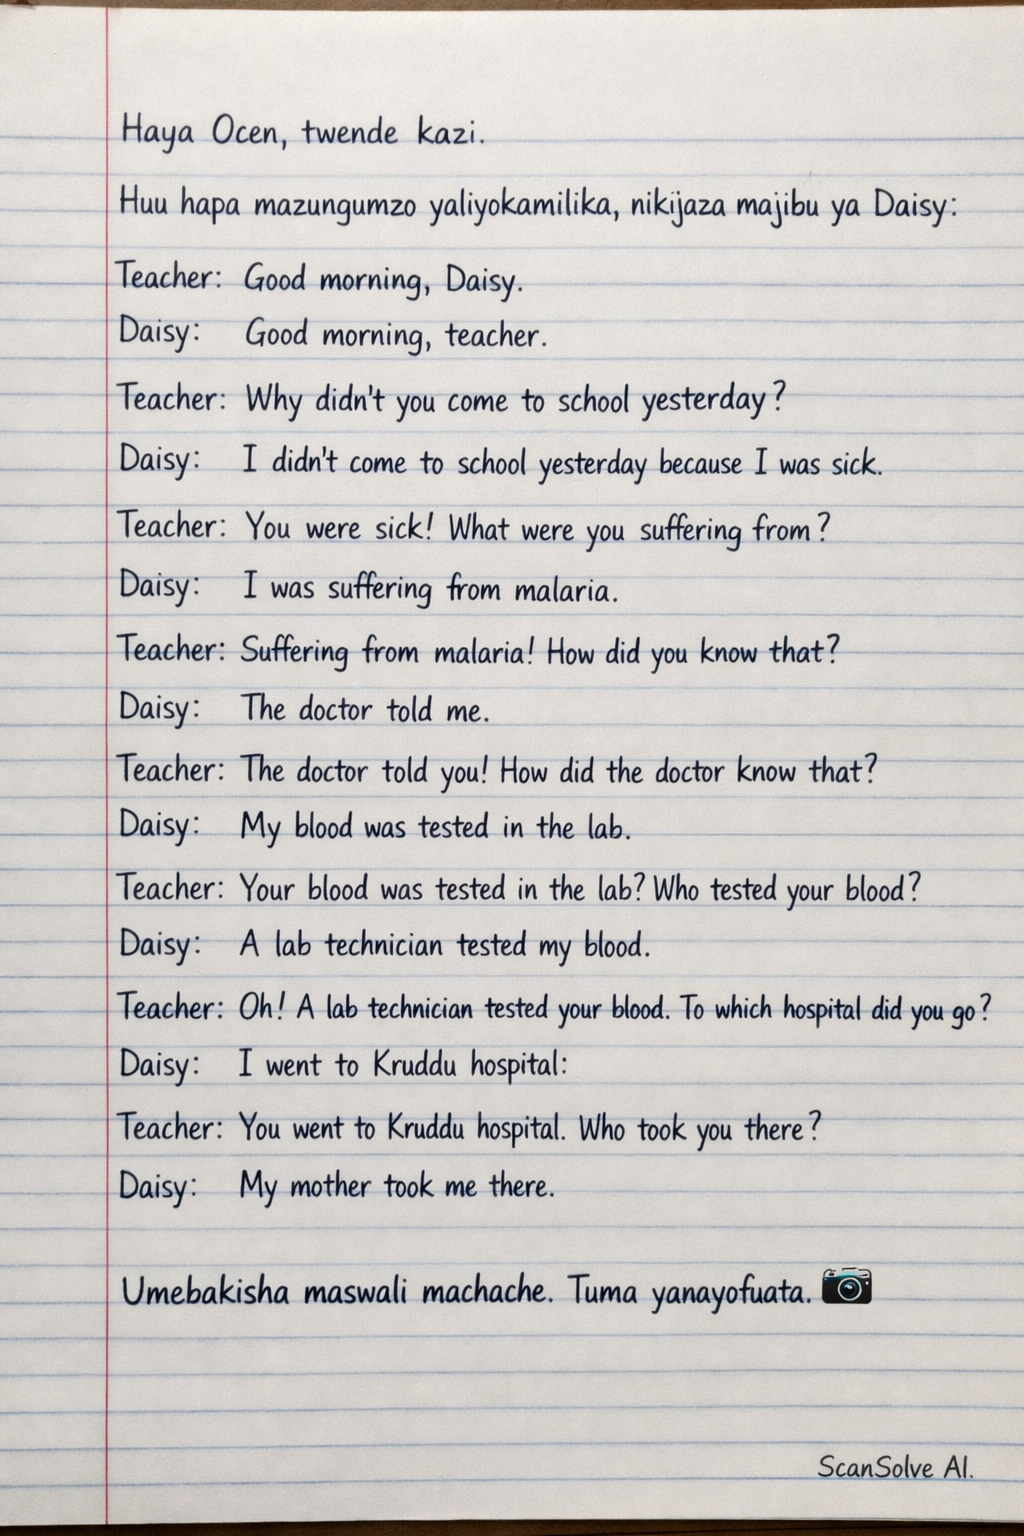 Haya Ocen, twende kazi.
Huu hapa mazungumzo yaliyokamilika, nikijaza majibu ya Daisy:
Teacher: Good morning, Daisy.
Daisy: Good morning, teacher.
Teacher: Why didn't you come to school yesterday?
Daisy: I didn't come to school yesterday because I was sick.
Teacher: You were sick! What were you suffering from?
Daisy: I was suffering from malaria.
Teacher: Suffering from malaria! How did you know that?
Daisy: The doctor told me.
Teacher: The doctor told you! How did the doctor know that?
Daisy: My blood was tested in the lab.
Teacher: Your blood was tested in the lab? Who tested your blood?
Daisy: A lab technician tested my blood.
Teacher: Oh! A lab technician tested your blood. To which hospital did you go?
Daisy: I went to Kruddu hospital:
Teacher: You went to Kruddu hospital. Who took you there?
Daisy: My mother took me there.
Umebakisha maswali machache. Tuma yanayofuata. 📷
ScanSolve AI.